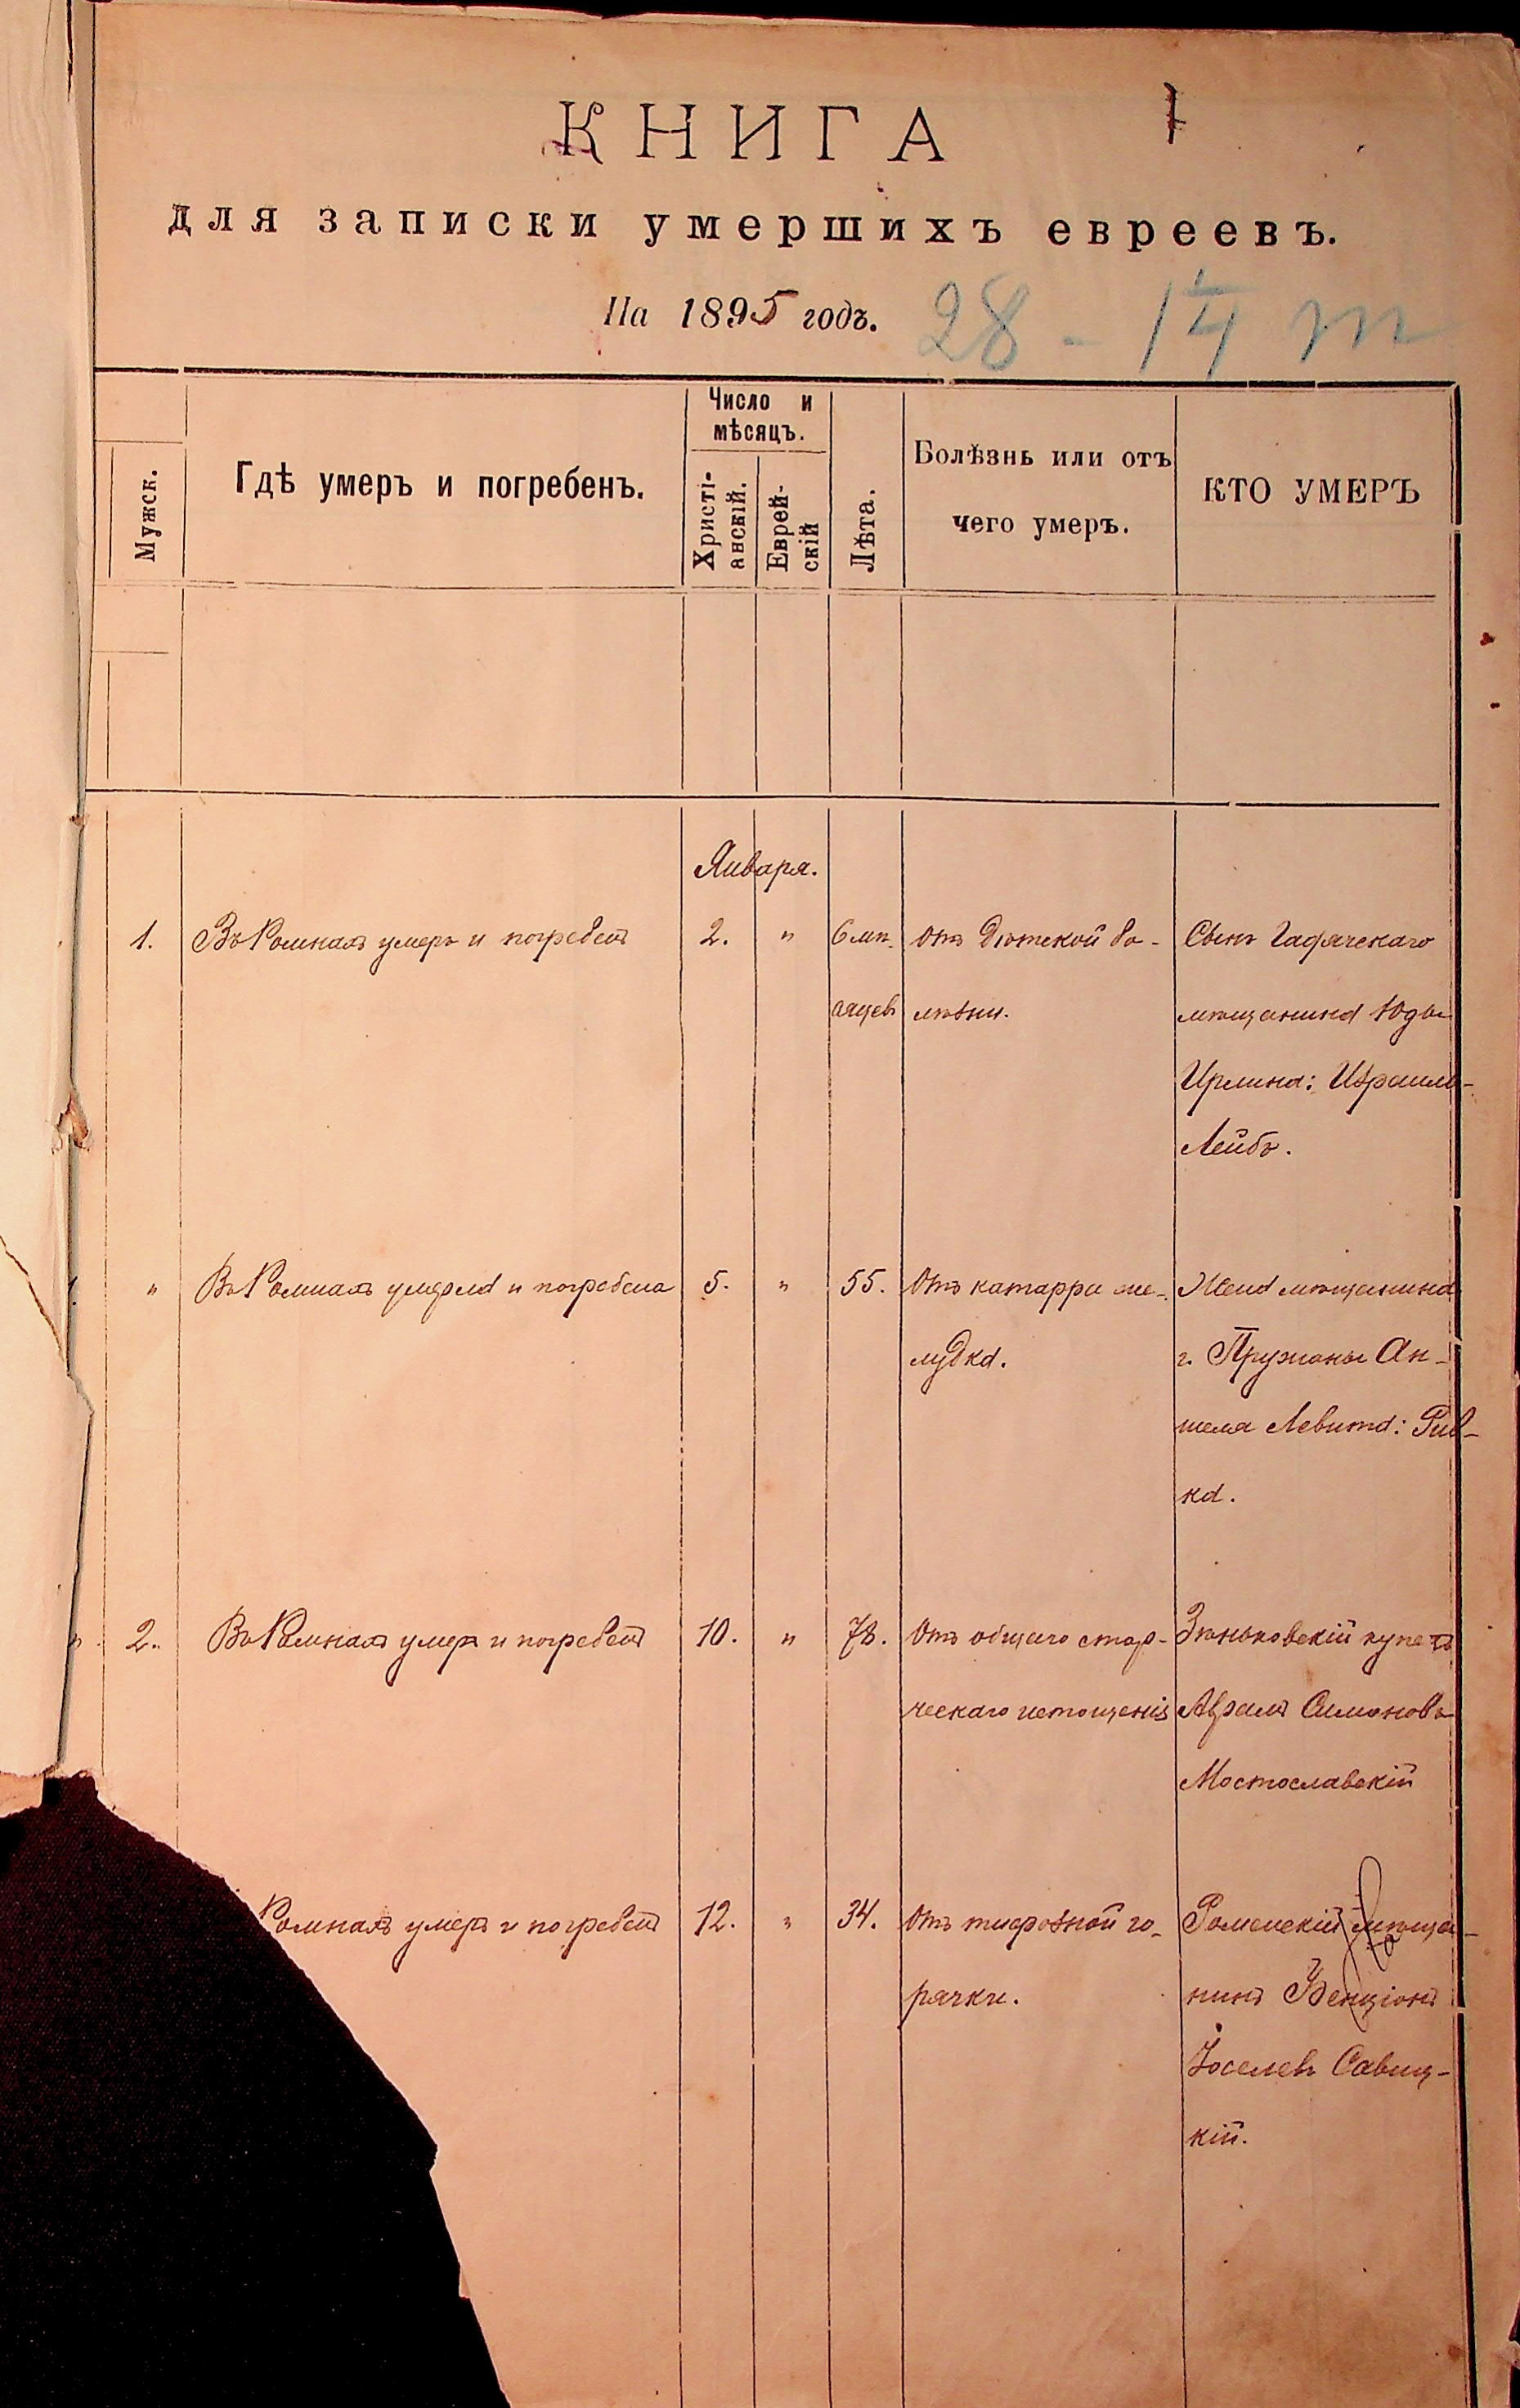 КНИГА
для записки умершихъ евреевъ.
На 1895 годъ.
28 - 14 т
Мужск.
Гдѣ умеръ и погребенъ.
Число и
мѣсяцъ.
Христі-
анскій.
Еврей-
скій
Лѣта.
Болѣзнь или отъ
чего умеръ.
КТО УМЕРЪ
Января.
1. Въ Ромнахъ умеръ и погребенъ 2. " 6 мѣ- отъ дѣтской бо- Сынъ Гадячскаго
сяцевъ лѣзни. мѣщанина Юды
Ирлина: Израиль-
Лейбъ.
" Въ Ромнахъ умерла и погребена 5. " 55. Отъ катарра же- Жена мѣщанина
лудка. г. Пружаны Ан-
шеля Левита: Рив-
ка.
" 2. Въ Ромнахъ умеръ и погребенъ 10. " 78. Отъ общаго стар- Зѣньковскій купецъ
ческаго истощенія Абрамъ Симоновъ
Мостославскій
Ромнахъ умеръ и погребенъ 12. " 34. Отъ тифозной го- Роменскій мѣща-
рячки. нинъ Бенціонъ
Іоселевъ Савиц-
кій.